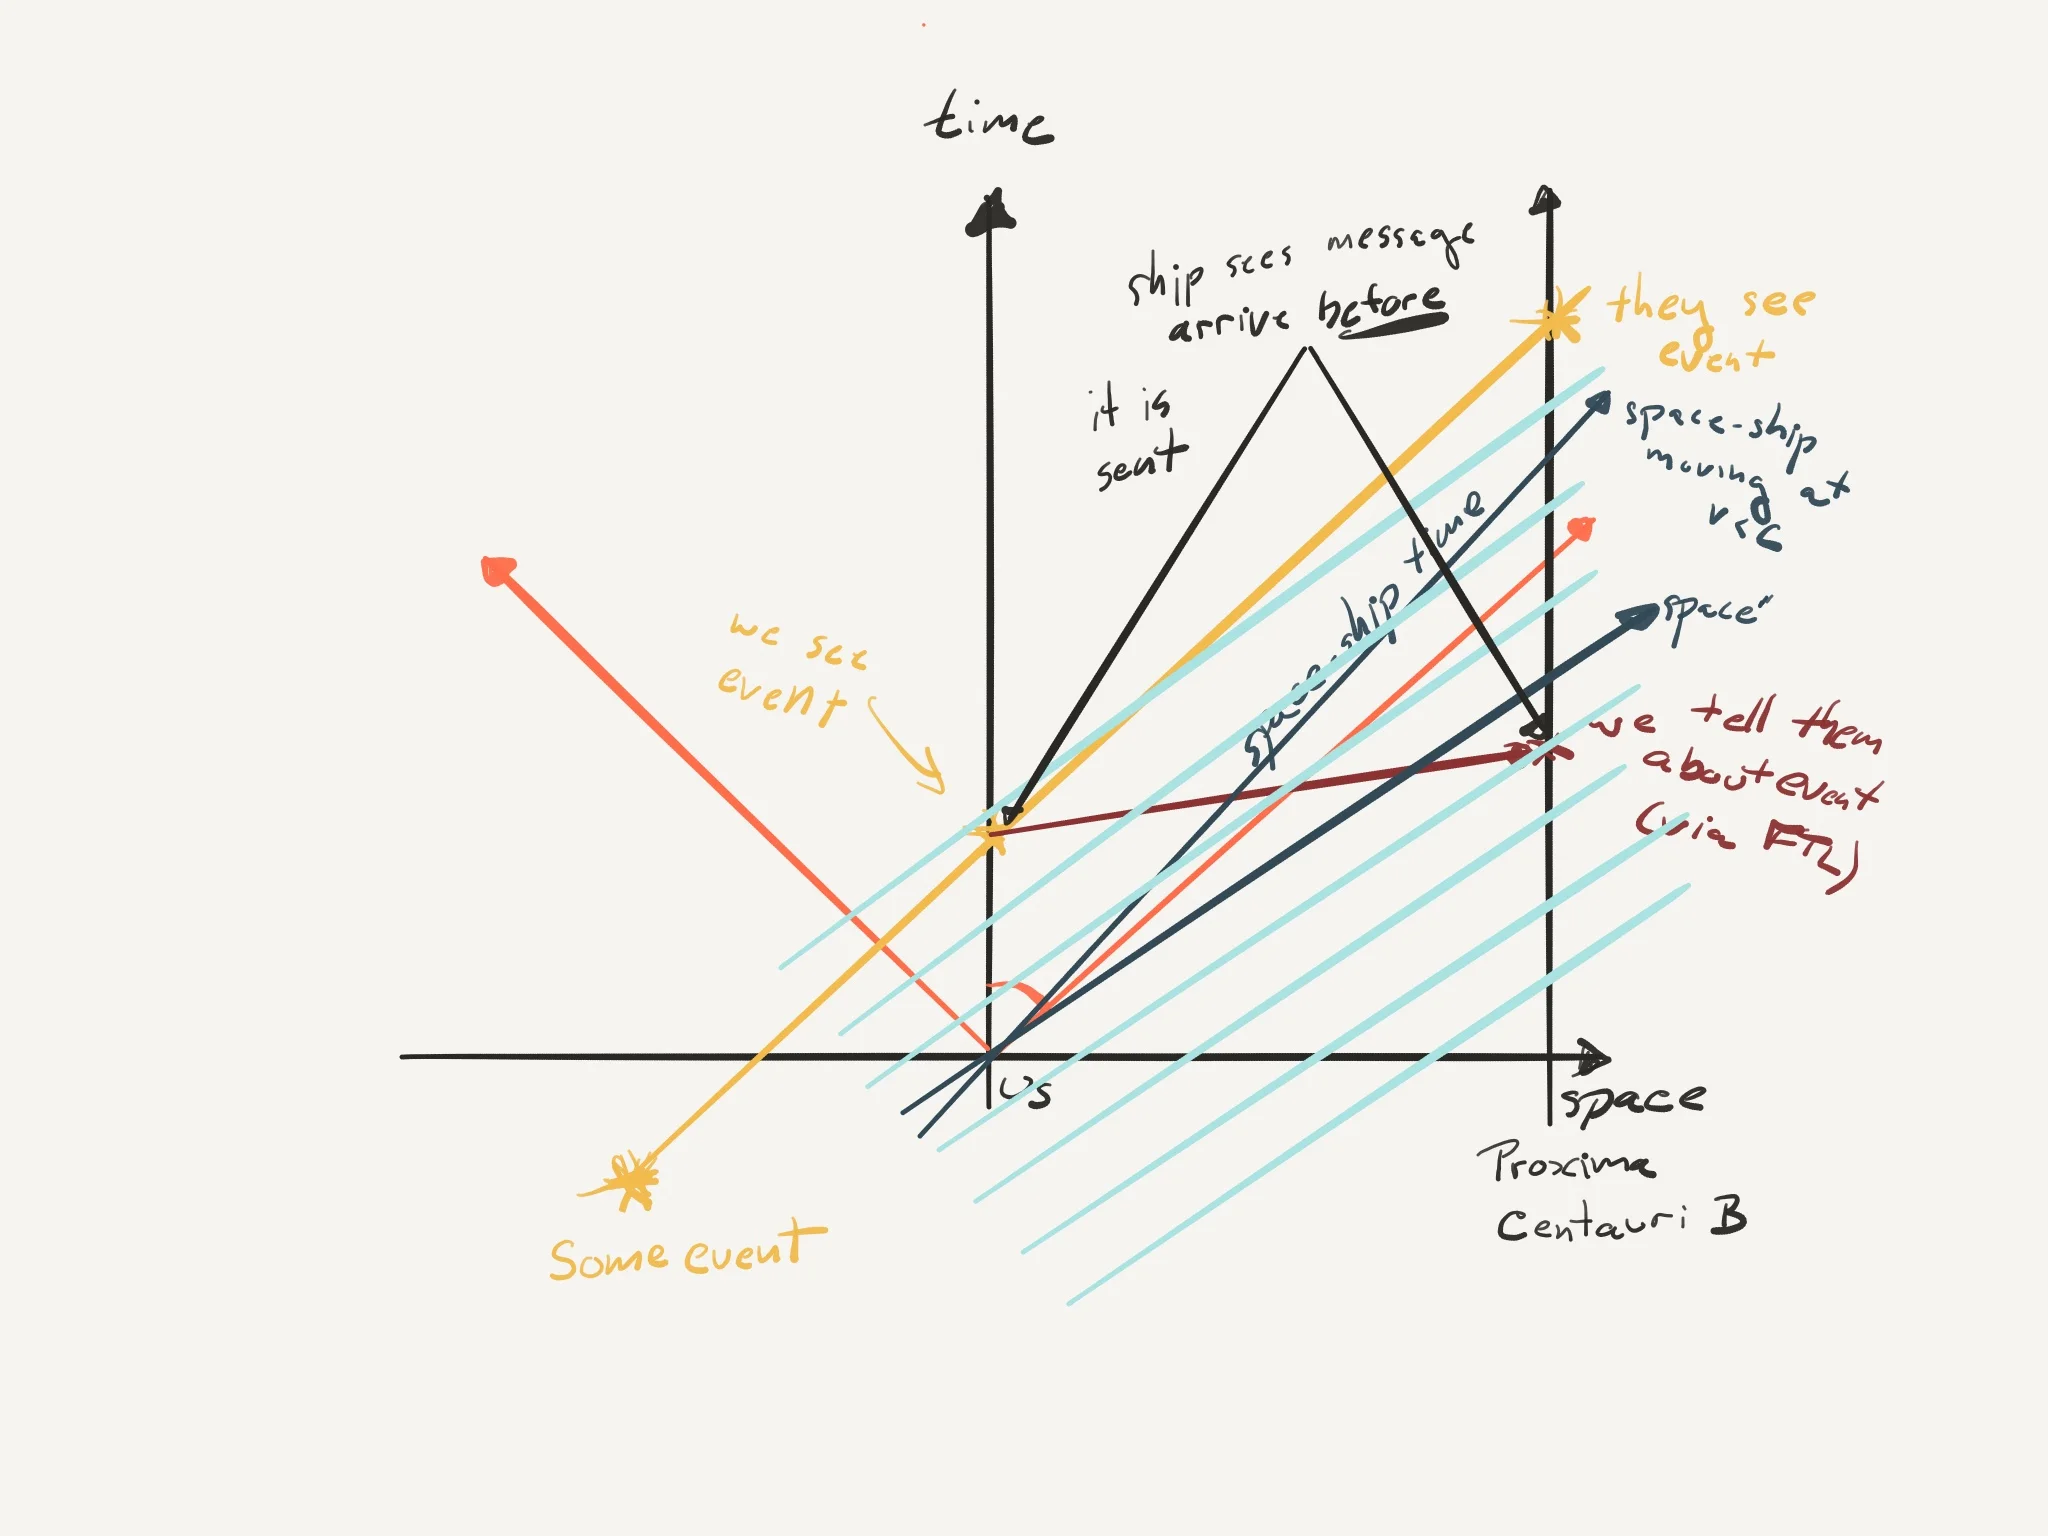 time
ship sees message
arrive before
it is
sent
they see
event
space-ship
moving at
v < c
space-ship time
space"
we see
event
we tell them
about event
(via FTL)
us
space
Proxima
Centauri B
Some event